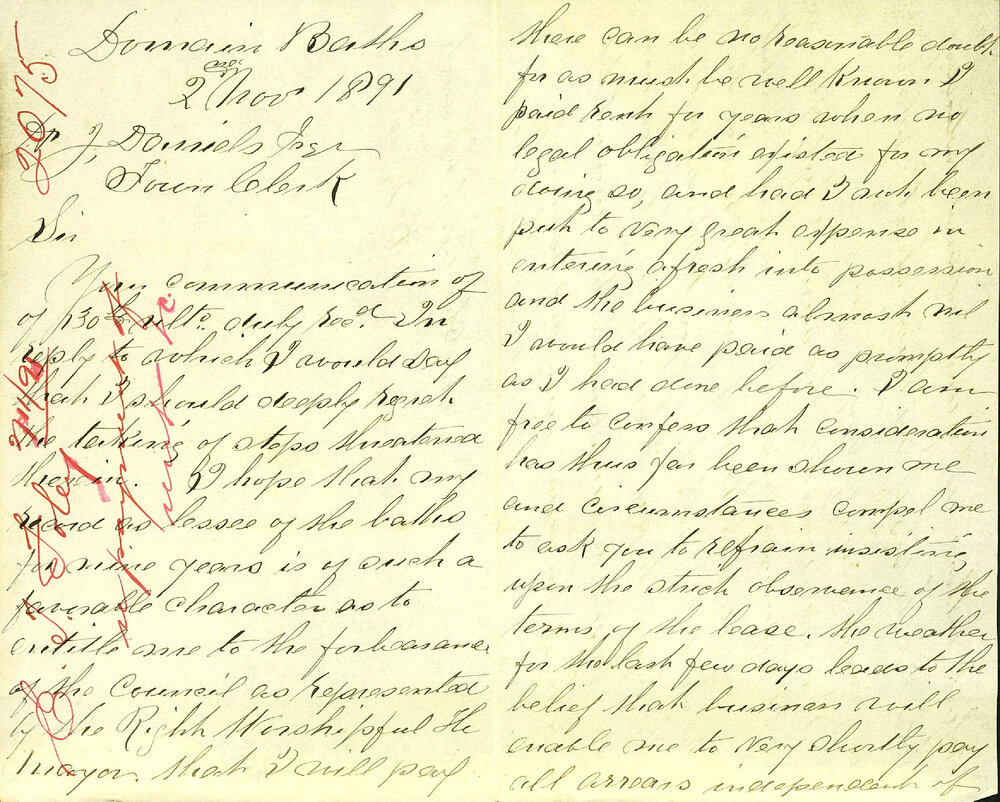 Domain Baths
2nd Nov 1891
J, Daniels Esqr
Town Clerk
Sir
Your communication of
of 30th ulto. duly recd. In
reply to which I would say
that I should deeply regret
the taking of steps threatened
therein. I hope that my
record as lessee of the baths
for nine years is of such a
favorable character as to
entitle me to the forbearance
of the Council as represented
by the Right Worshipful the
Mayor. that I will pay
there can be no reasonable doubt
for as must be well known I
paid rent for years when no
legal obligation existed for my
doing so, and had I not been
put to very great expense in
entering afresh into possession
and the business almost nil
I would have paid as promptly
as I had done before. I am
free to confess that consideration
has thus far been shown me
and circumstances compel me
to ask you to refrain insisting
upon the strict observance of the
terms of the lease. the weather
for the last few days leads to the
belief that business will
enable me to very shortly pay
all arrears independent of
2075
2/11/91
nonpayment of
rent &c.